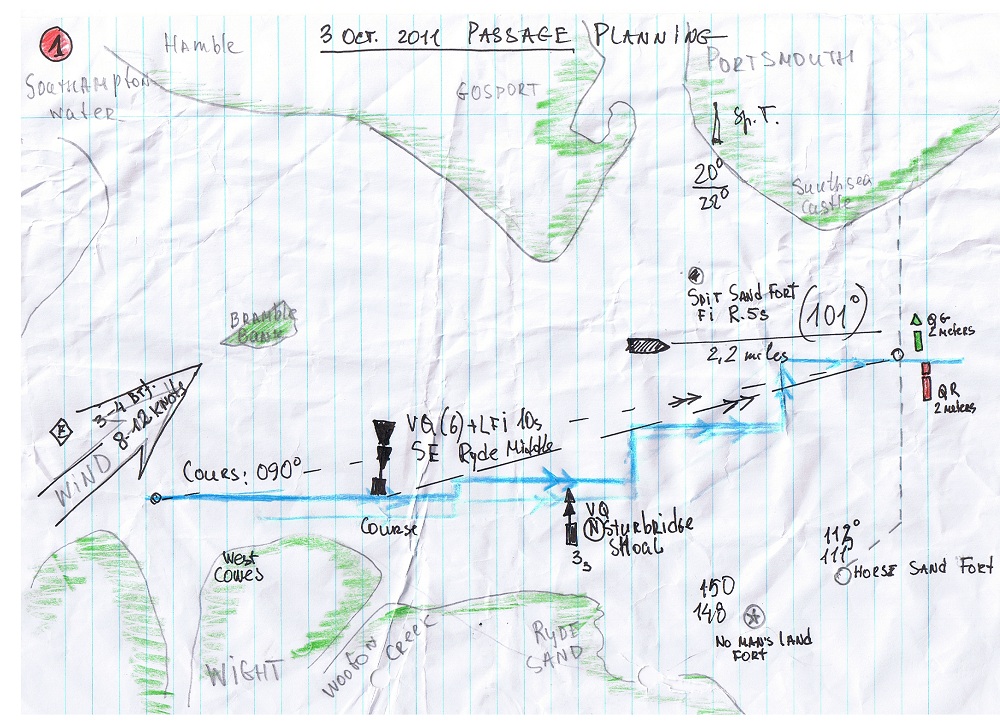 1
3 Oct. 2011 PASSAGE PLANNING
Hamble
SOUTHAMPTON
WATER
GOSPORT
PORTSMOUTH
Sp. T.
20°
22°
Southsea
Castle
SPIT SAND FORT
Fi R. 5s
(101°)
2,2 miles
QG
2 meters
QR
2 meters
BRAMBLE
BANK
3-4 Bft.
8-12 KNOTS
WIND
COURS: 090°
VQ (6) + LFi 10s
SE Ryde Middle
Course
VQ
N Sturbridge
SHOAL
West
Cowes
WIGHT
WOOTON
CREEK
RYDE
SAND
150
148
NO MAN'S LAND
FORT
111°
HORSE SAND FORT